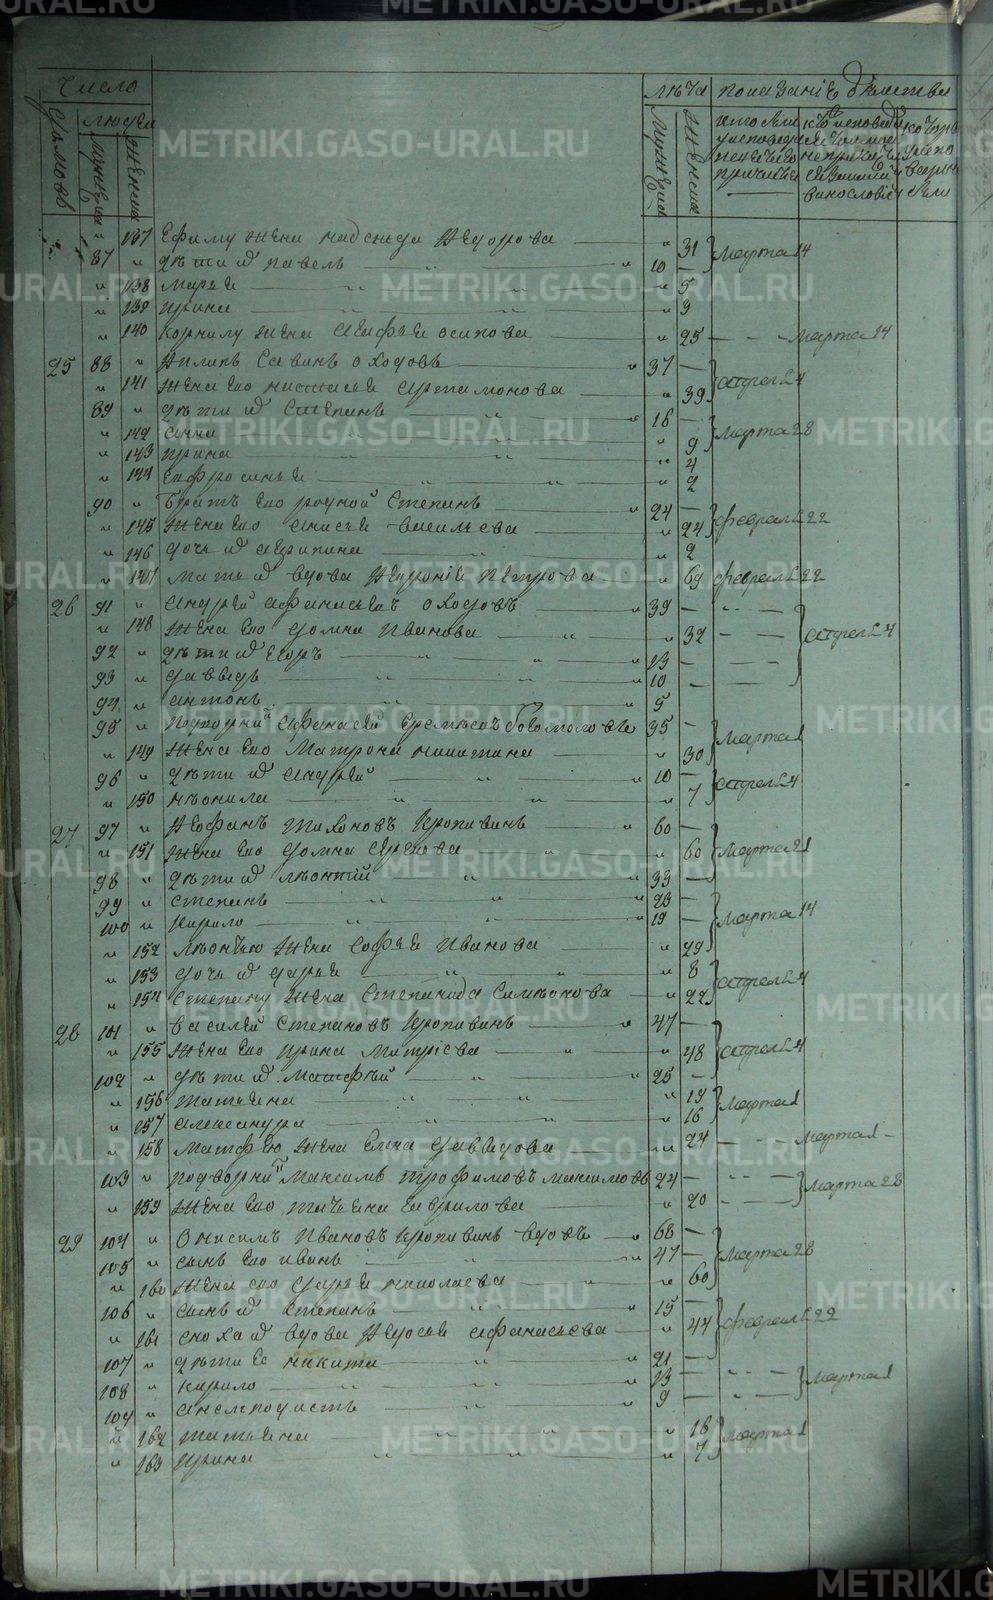 METRIKI.GASO-URAL.RU
Число лѣта показаніе бытства
домовъ людей
мужеска женска мужеска женска
" 137 Ефиму жена надежда Федорова " 31 марта 14
87 " дѣти их павелъ " 10
" 138 марья " 5
" 139 ирина " 3
" 140 корнилу жена агафья осипова " 25 марта 14
25 88 " филипъ савинъ оходовъ 37
" 141 жена ево настасья артамонова " 39 апреля 4
89 " дѣти их степанъ 16
" 142 анна " 9 марта 28
" 143 ирина " 4
" 144 евфросинья " 2
90 " братъ ево родной степанъ 24
" 145 жена ево анисья васильева " 24 февраля 22
" 146 дочь их агрипина " 2
" 147 мать их вдова Федосія петрова " 69 февраля 22
26 91 " андрей афанасьевъ оходовъ 39
" 148 жена ево домна иванова " 32 апреля 4
92 " дѣти их егоръ 13
93 " давыдъ 10
94 " антонъ 5
95 " подворник афанасей еремѣевъ богомоловъ 35
" 149 жена ево матрона никитина " 30 марта 1
96 " дѣти их андрей 10
" 150 неонила " 7 апреля 4
27 97 " Феофанъ тихоновъ кропивинъ 60
" 151 жена ево домна " 60 марта 21
98 " дѣти их леонтий 33
99 " степанъ 23
100 " кирило 19 марта 14
" 152 леонтью жена софья иванова " 29
" 153 дочь их дарья " 8
" 154 степану жена степанида симеонова " 22 апреля 4
28 101 " василей степановъ кропивинъ 47
" 155 жена ево ирина матвѣева " 48 апреля 4
102 " дѣти их матфѣй 25
" 156 татьяна " 19
" 157 александра " 16 марта 1
" 158 матфею жена елена давыдова " 24 марта 1
103 " подворни максимъ трофимовъ максимовъ 24
" 159 жена ево татьяна гаврилова " 20 марта 28
29 104 " Онисимъ ивановъ кропивинъ вдовъ 68
105 " сынъ ево иванъ 47 марта 28
" 160 жена ево дарья николаева " 60
106 " сынъ их степанъ 15
" 161 сноха их вдова Федосья афанасьева " 44 февраля 22
107 " дѣти ее никита 21
108 " кирило 13 марта 1
109 " анемподистъ 9
" 162 татьяна " 16
" 163 ирина " 7 марта 1